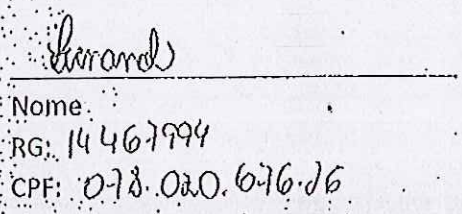 Nome:
RG: 14467994
CPF: 078.020.676.16